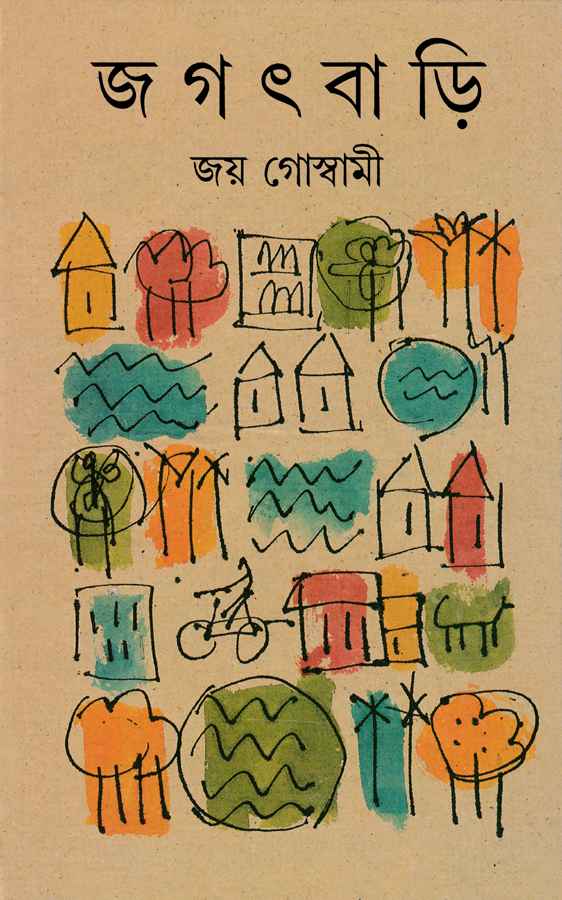 জগৎবাড়ি
জয় গোস্বামী